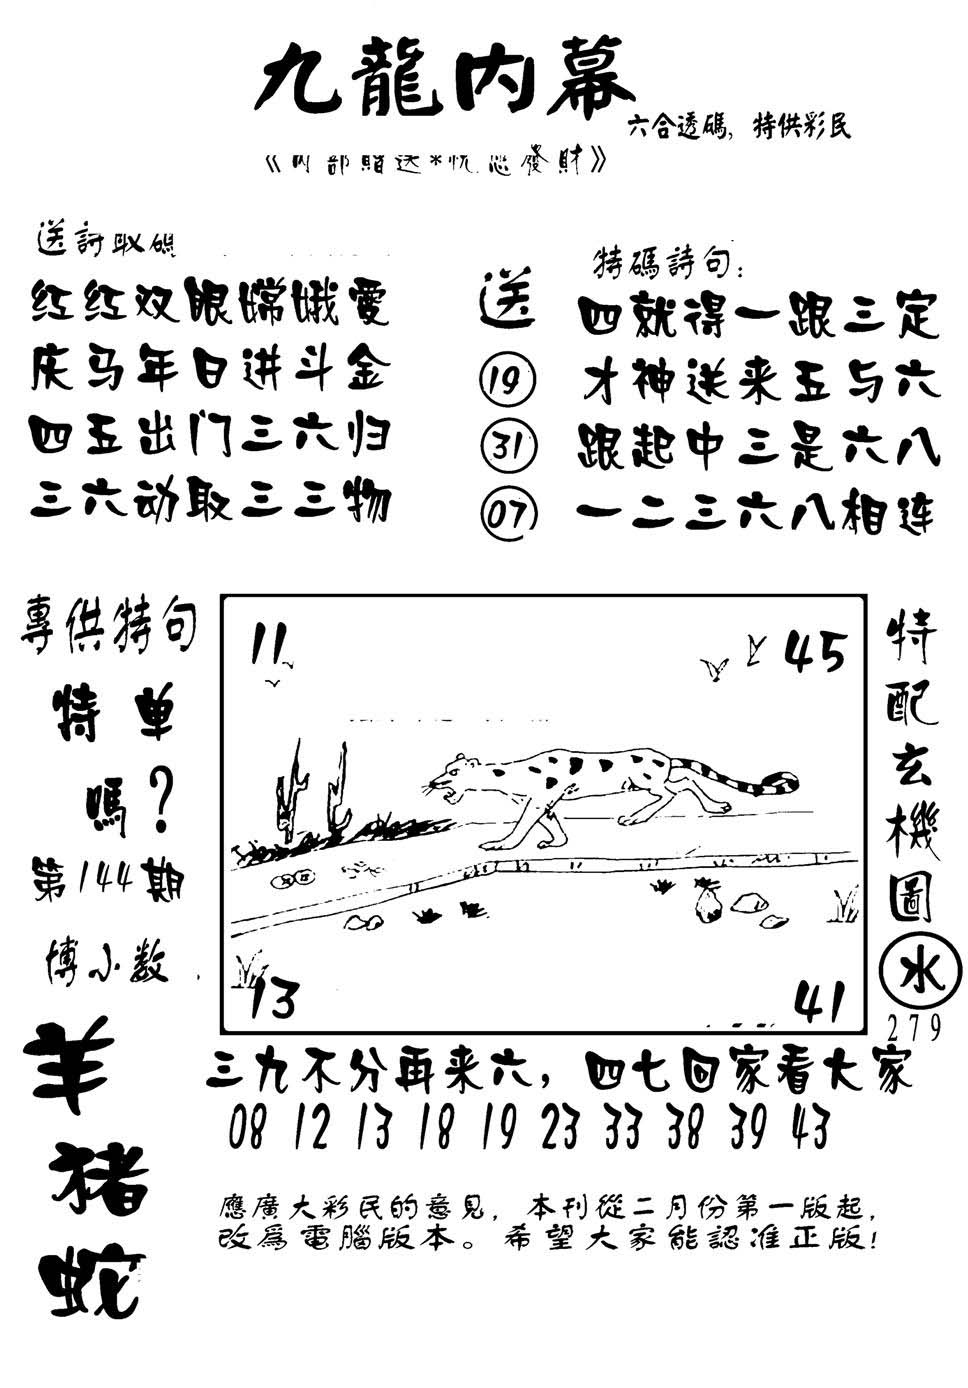 九龍内幕
六合透碼，特供彩民
送詩取碼
红红双眼嫦娥愛
庆马年日进斗金
四五出门三六归
三六动取三三物
送
19
31
07
特碼詩句：
四就得一跟三定
才神送来五与六
跟起中三是六八
一二三六八相连
專供特句
特单
嗎？
第144期
博小数
羊
猪
蛇
11
45
13
41
特配玄機圖
水
279
三九不分再来六，四七回家看大家
08 12 13 18 19 23 33 38 39 43
應廣大彩民的意見，本刊從二月份第一版起，
改為電腦版本。希望大家能認准正版！